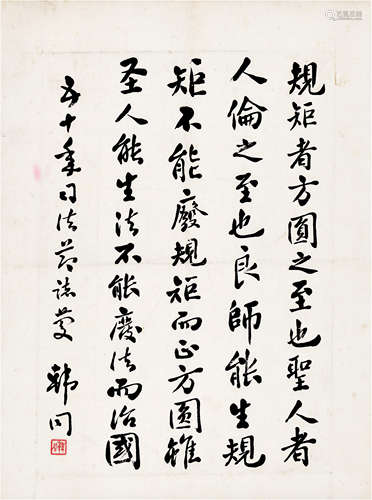 規矩者方圓之至也聖人者
人倫之至也良師能生規
矩不能廢規矩而正方圓雖
圣人能生法不能廢法而治國
五十年司法節誌慶 韓同